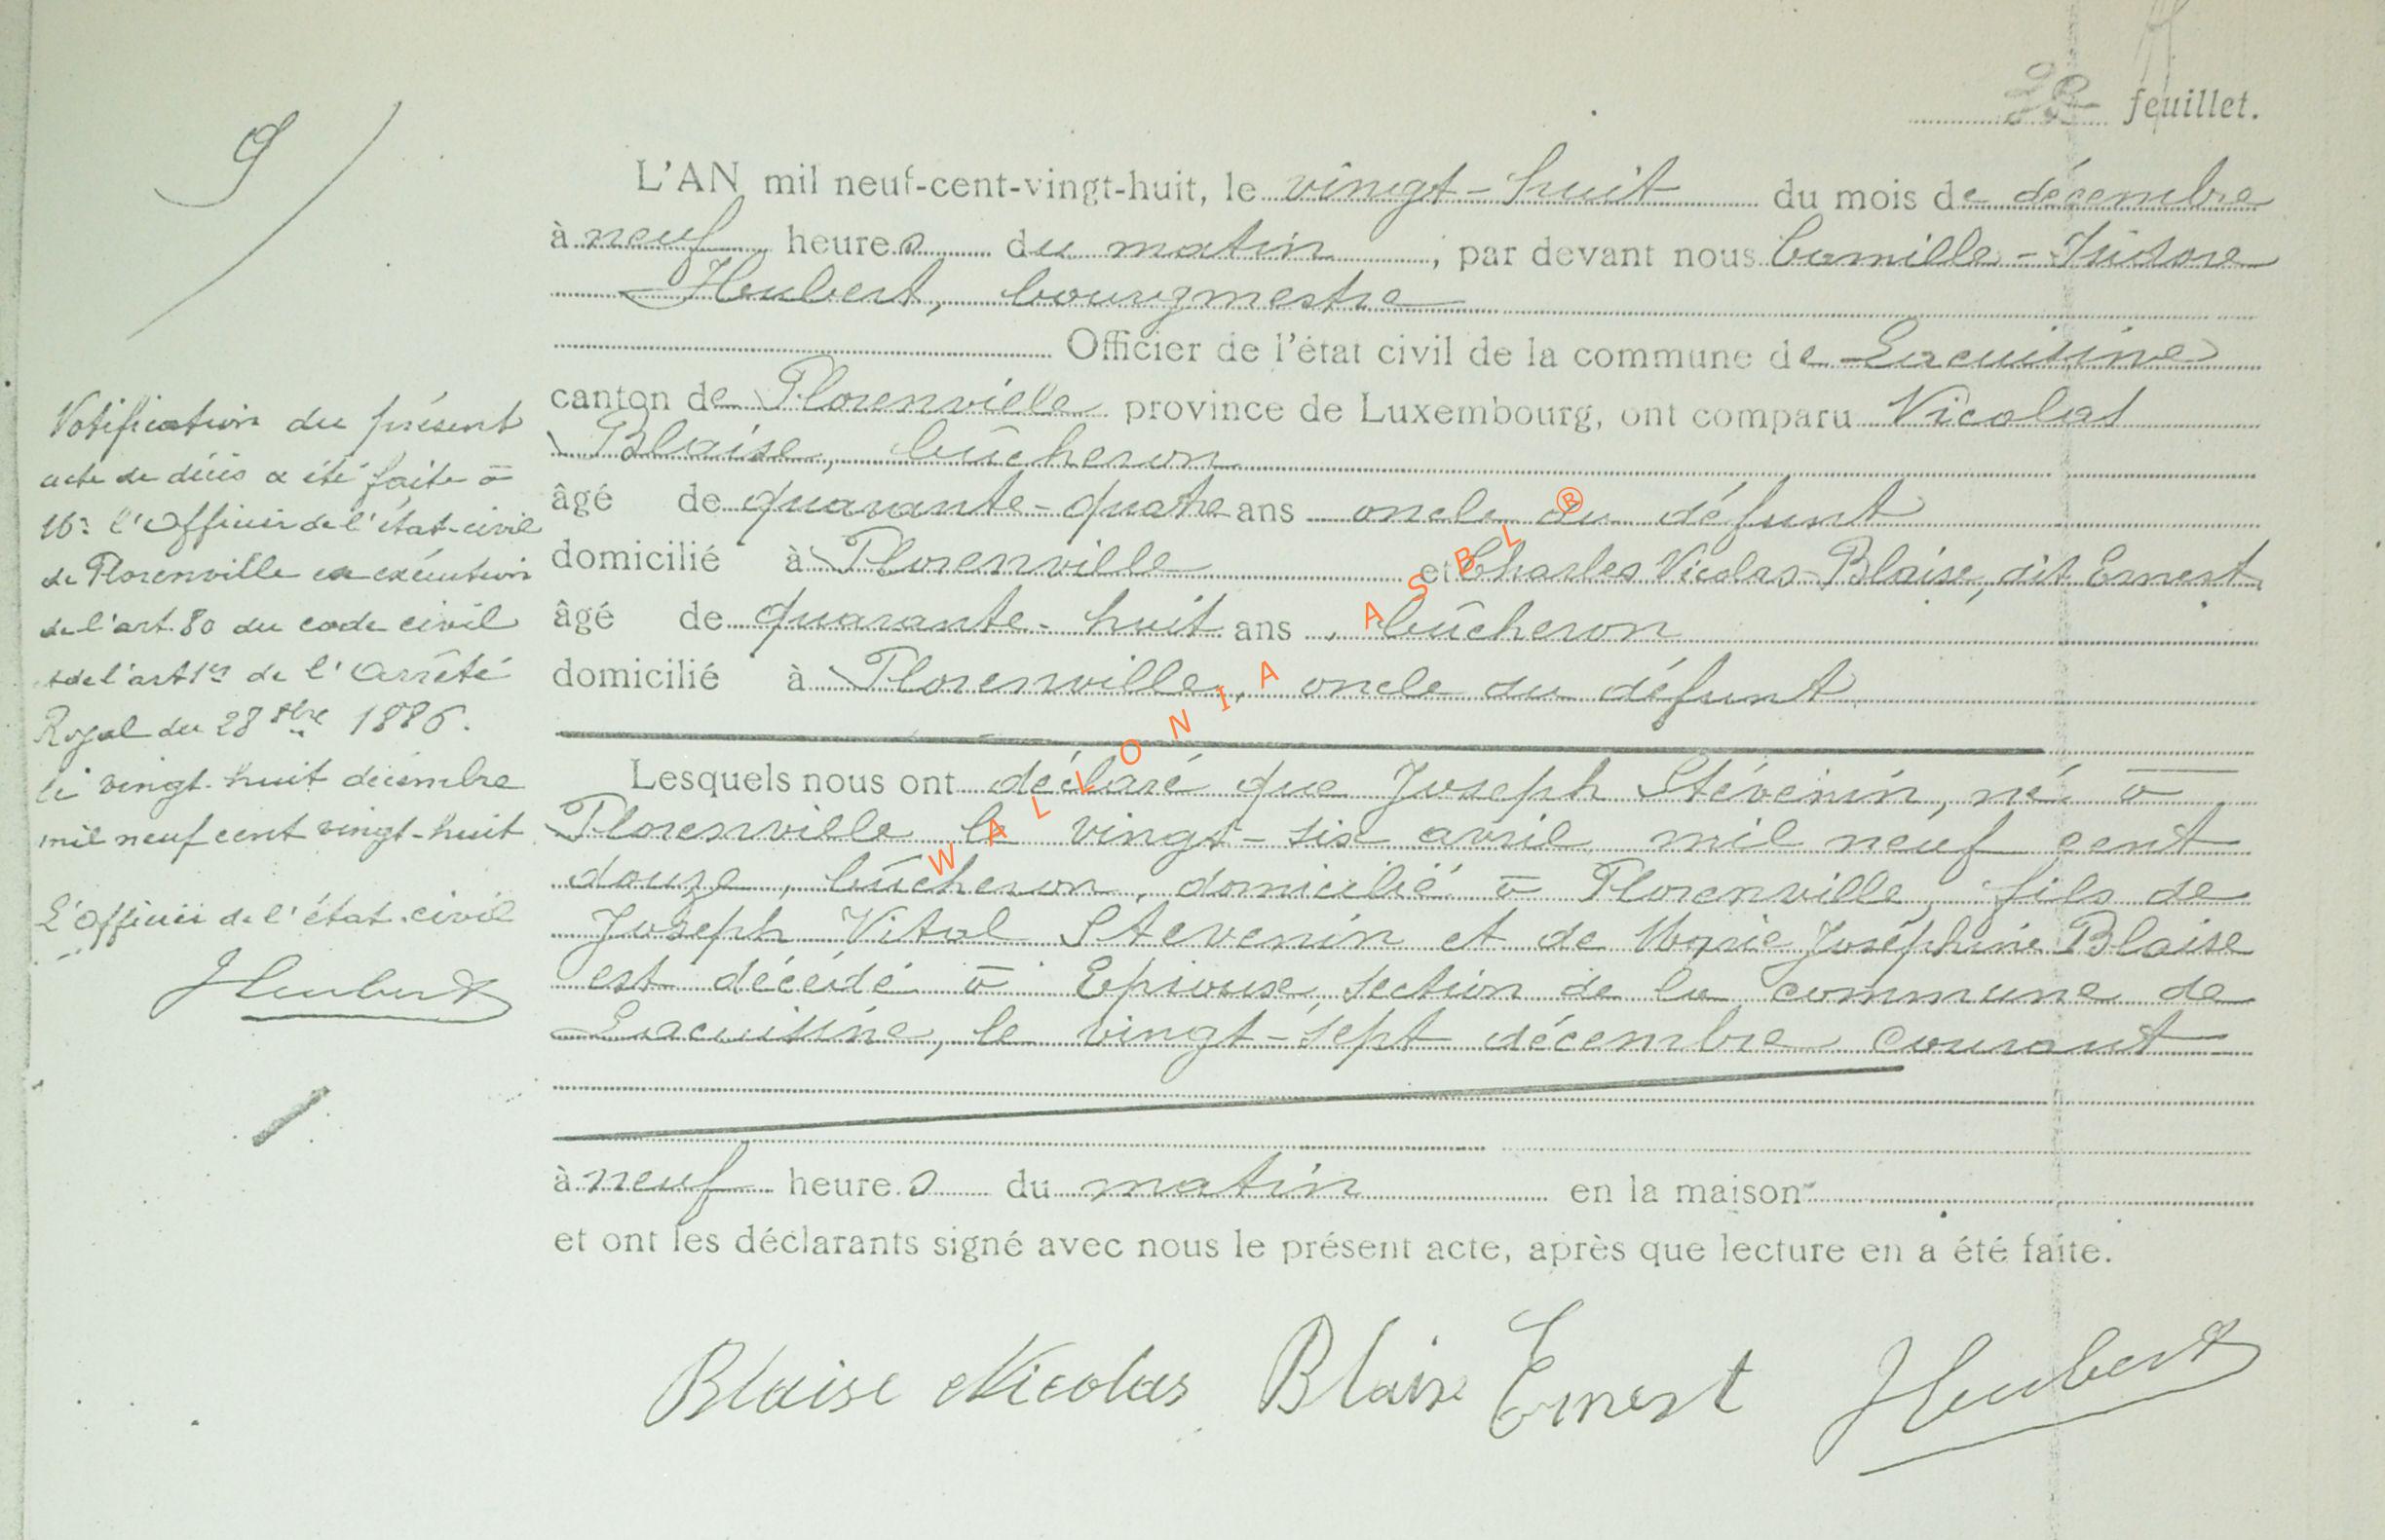 9
feuillet.
L'AN mil neuf-cent-vingt-huit, le vingt-huit du mois de décembre
à neuf heures du matin, par devant nous Camille-Isidore
Hubert, bourgmestre
Officier de l'état civil de la commune de Lacuisine
canton de Florenville province de Luxembourg, ont comparu Nicolas
Blaise, bûcheron
âgé de quarante-quatre ans oncle du défunt
domicilié à Florenville et Charles Nicolas Blaise, dit Ernest
âgé de quarante-huit ans, bûcheron
domicilié à Florenville, oncle du défunt
Lesquels nous ont déclaré que Joseph Stévenin, né à
Florenville le vingt-six avril mil neuf cent
douze, bûcheron, domicilié à Florenville, fils de
Joseph Vital Stevenin et de Marie Joséphine Blaise
est décédé à Epioux, section de la commune de
Lacuisine, le vingt-sept décembre courant
à neuf heures du matin en la maison
et ont les déclarants signé avec nous le présent acte, après que lecture en a été faite.
Blaise Nicolas Blaise Ernest Hubert
Notification du présent
acte de décès a été faite à
Mr l'Officier de l'état-civil
de Florenville en exécution
de l'art. 80 du code civil
& de l'art 1er de l'Arrêté
Royal du 28 1886.
le vingt-huit décembre
mil neuf cent vingt-huit
L'Officier de l'état-civil
Hubert
WALLONIA ASBL ®